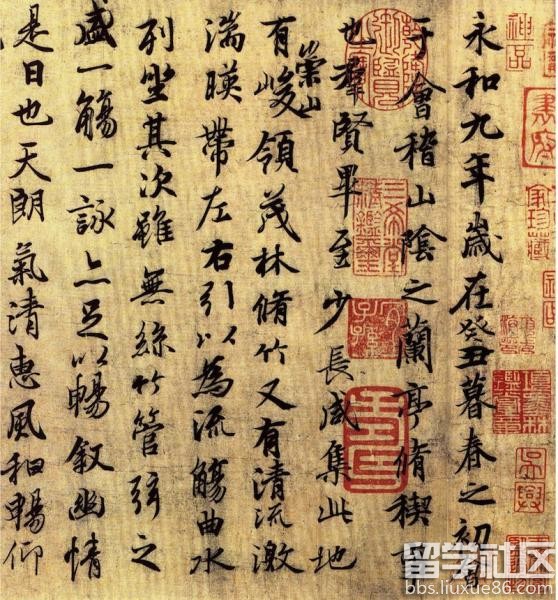 永和九年歲在癸丑暮春之初會
于會稽山陰之蘭亭脩稧事
也羣賢畢至少長咸集此地
有崇山峻領茂林脩竹又有清流激
湍暎帶左右引以為流觴曲水
列坐其次雖無絲竹管弦之
盛一觴一詠亦足以暢敘幽情
是日也天朗氣清惠風和暢仰
神品
三希堂精鑑璽
宜子孫
留学社区
bbs.liuxue86.com